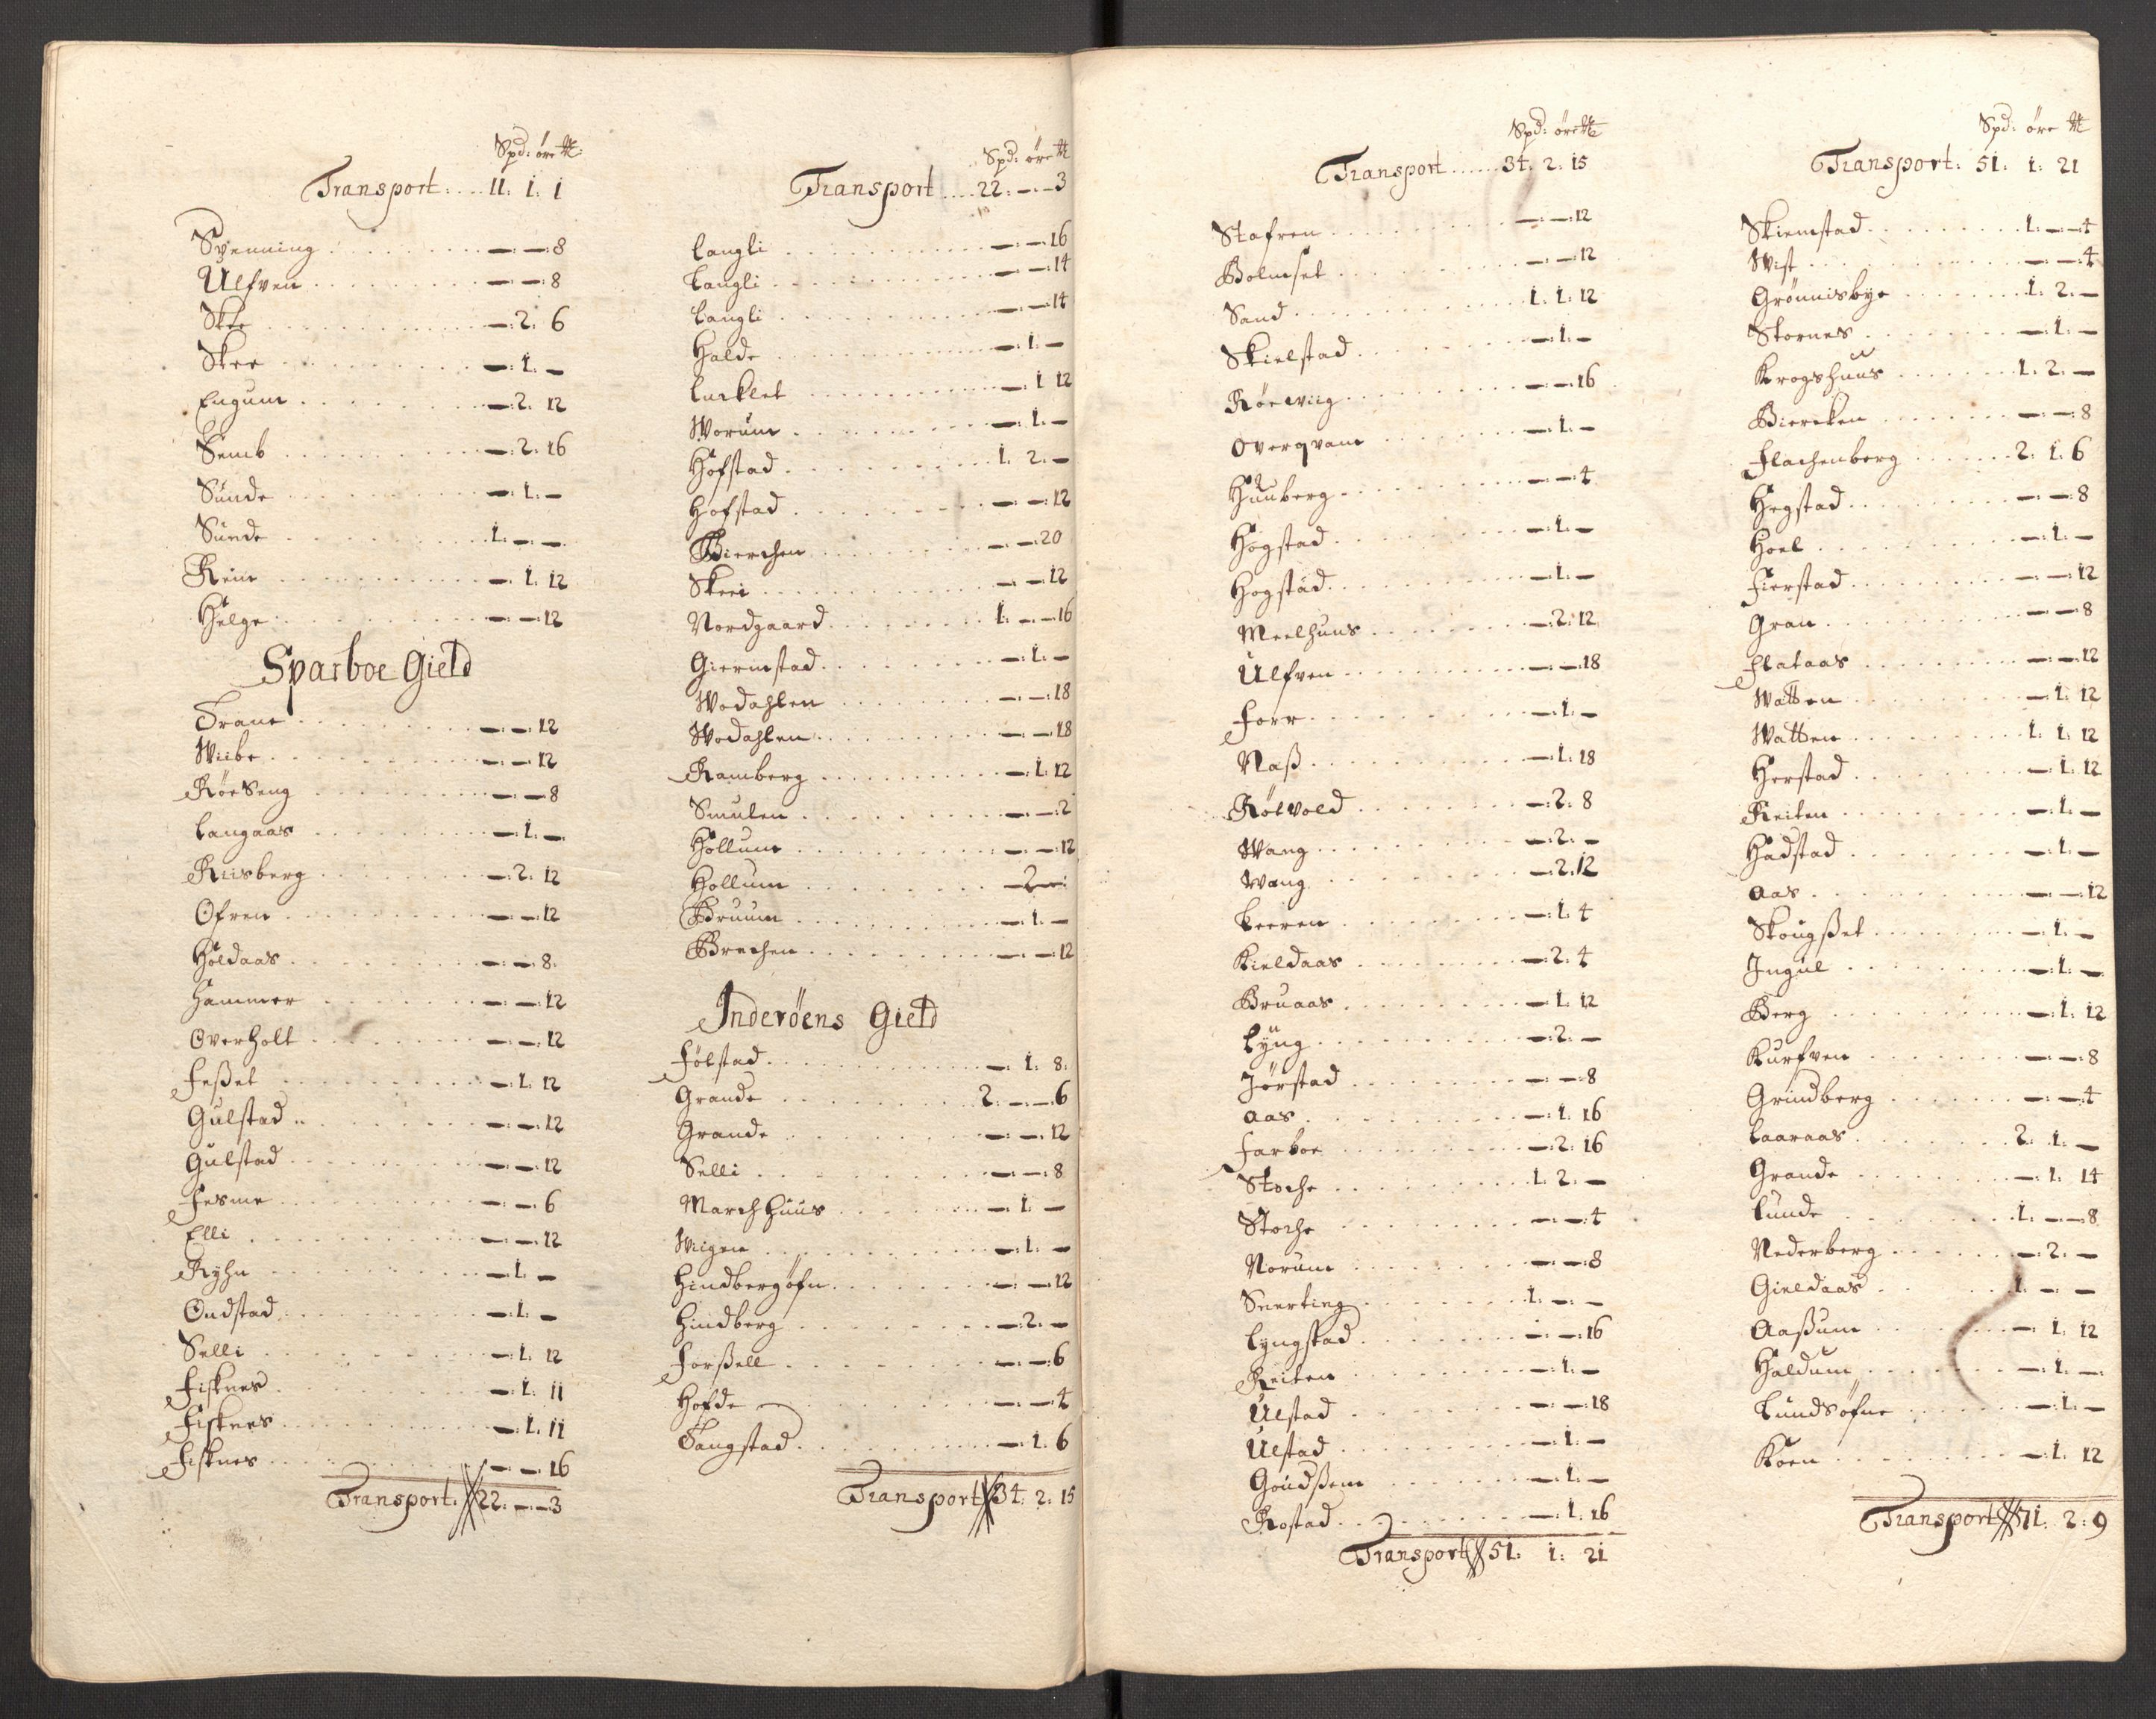 Spd: øre ℔:
Transport: .... 11. 1. 1
Svenning ........ —. —. 8
Ulfven ........ —. —. 8
Skee ........ —. 2. 6
Skee ........ —. 1. —
Engum ........ —. 2. 12
Semb ........ —. 2. 16
Sunde ........ —. 1. —
Sunde ........ 1. —. —
Rein ........ —. 1. 12
Helge ........ —. —. 12
Sparboe Gield
Trane ........ —. —. 12
Wiibe ........ —. —. 12
Røeseng ........ —. —. 8
Langaas ........ —. 1. —
Riisberg ........ —. 2. 12
Ofren ........ —. —. 12
Holdaas ........ —. —. 8.
Hammer ........ —. —. 12
Overholt ........ —. —. 12
Feßet ........ —. 1. 12
Gulstad .. ........ —. —. 12
Gulstad ........ —. —. 12
Fesme ........ —. —. 6
Elli ........ —. —. 12
Ryhn ........ —. 1. —
Ondstad ........ —. 1. —
Selli ........ —. 1. 12
Fisknes ........ —. 1. 11
Fisknes ........ —. 1. 11
Fisknes ........ —. —. 16
Transport: 22. —. —. 3
Spd: øre ℔
Transport .... 22. —. —. 3
Langli ........ —. —. 16
Langli ........ —. —. 14
Langli ........ —. —. 14
Halde ........ —. 1. —
Lucklet ........ —. 1 12
Worum ........ —. 1. —
Hofstad ........ 1. 2. —
Hofstad ........ —. —. 12
Bierchen ........ —. —. 20
Skeei ........ —. —. 12
Nordgaard ........ 1. —. —. 16
Giermstad ........ —. 1. —
Wodahlen ........ —. —. 18
Wodahlen ........ —. —. 18
Ramberg ........ —. 1. 12
Smulen ........ —. —. 2
Hollum ........ —. —. 12
Hollum ........ —. 2. —
Bruum ........ —. 1. —
Brechen ........ —. —. 12
Inderöens Gield
Følstad ........ —. 1. 8.
Grande ........ 2. —. —. 6
Grande ........ —. —. 12
Selli ........ —. —. 8
March huus ........ —. 1. —
Wiigen ........ —. 1. —
Hindbergøfn ........ —. —. 12
Hindberg ........ —. 2. —
Forßell ........ —. —. 6
Hofde ........ —. —. 4
Tangstad ........ —. 1. 6
Transport 34. 2. 15
Spd: øre ℔
Transport ...... 34. 2. 15
Stafren ........ —. —. 12
Bolmset ........ —. —. 12
Sand ........ 1. 1. 12
Skielstad ........ —. 1. —
Røewiig ........ —. —. 16
Overqvam ........ —. 1. —
Huuberg ........ —. —. 4
Hogstad ........ —. 1. —
Hogstad ........ —. 1. —
Meelhuus ........ —. 2. 12
Ulfven ........ —. —. 18
Forr ........ —. 1. —
Naß ........ —. 1. 18
Røevold ........ —. 2. 8
Wang ........ —. 2. —
Wang ........ —. 2. 12
Leeren ........ —. 1. 4
Kieldaas ........ —. 2. 4
Bruaas ........ —. 1. 12
Lÿng ........ —. 2. —
Jørstad ........ —. —. 8
Aas ........ —. 1. 16
Farboe ........ —. 2. 16
Stoche ........ 1. 2. —
Stoche ........ —. —. 4
Norum ........ —. —. 8
Snerting ........ 1. —. —
Lyngstad ........ —. —. 16
Reiten ........ —. 1. —
Ulstad ........ —. —. 18
Ulstad ........ —. 1. —
Goudßem ........ —. 1. —
Rostad ........ —. 1. 16
Transport 51. 1. 21
Spd: øre ℔
Transport: 51. 1. 21
Skiemstad ........ 1. —. —. 4
Wist ........ —. —. 4
Grønnisbye ........ 1. 2. —
Stornes ........ —. 1. —
Krogshuus ........ 1. 2. —
Biercken ........ —. —. 8
Flachenberg ........ 2. 1. 6
Hegstad ........ —. —. 8
Hoel ........ —. 1. —
Fierstad ........ —. —. 12
Gran ........ —. —. 8
Flataas ........ —. —. 12
Watten ........ —. 1. 12
Watten ........ 1. 1. 12
Herstad ........ —. 1. 12
Reiten ........ —. 1. —
Hadstad ........ —. 1. —
Aas ........ —. —. 12
Skougßet ........ —. 1. —
Jngul ........ —. 1. —
Berg ........ —. 1. 12
Kurfven ........ —. —. 8
Grindberg ........ —. —. 4
Laaraas ........ 2. 1. —
Grande ........ —. 1. 14
Lunde ........ 1. —. —. 8
Nederberg ........ —. 2. —
Gieldaas ........ 1. —. —
Aaßum ........ —. 1. 12
Haldum ........ —. 1. —
Lundsøfne ........ —. 1. —
Koen ........ —. 1. 12
Transport 71. 2. 9